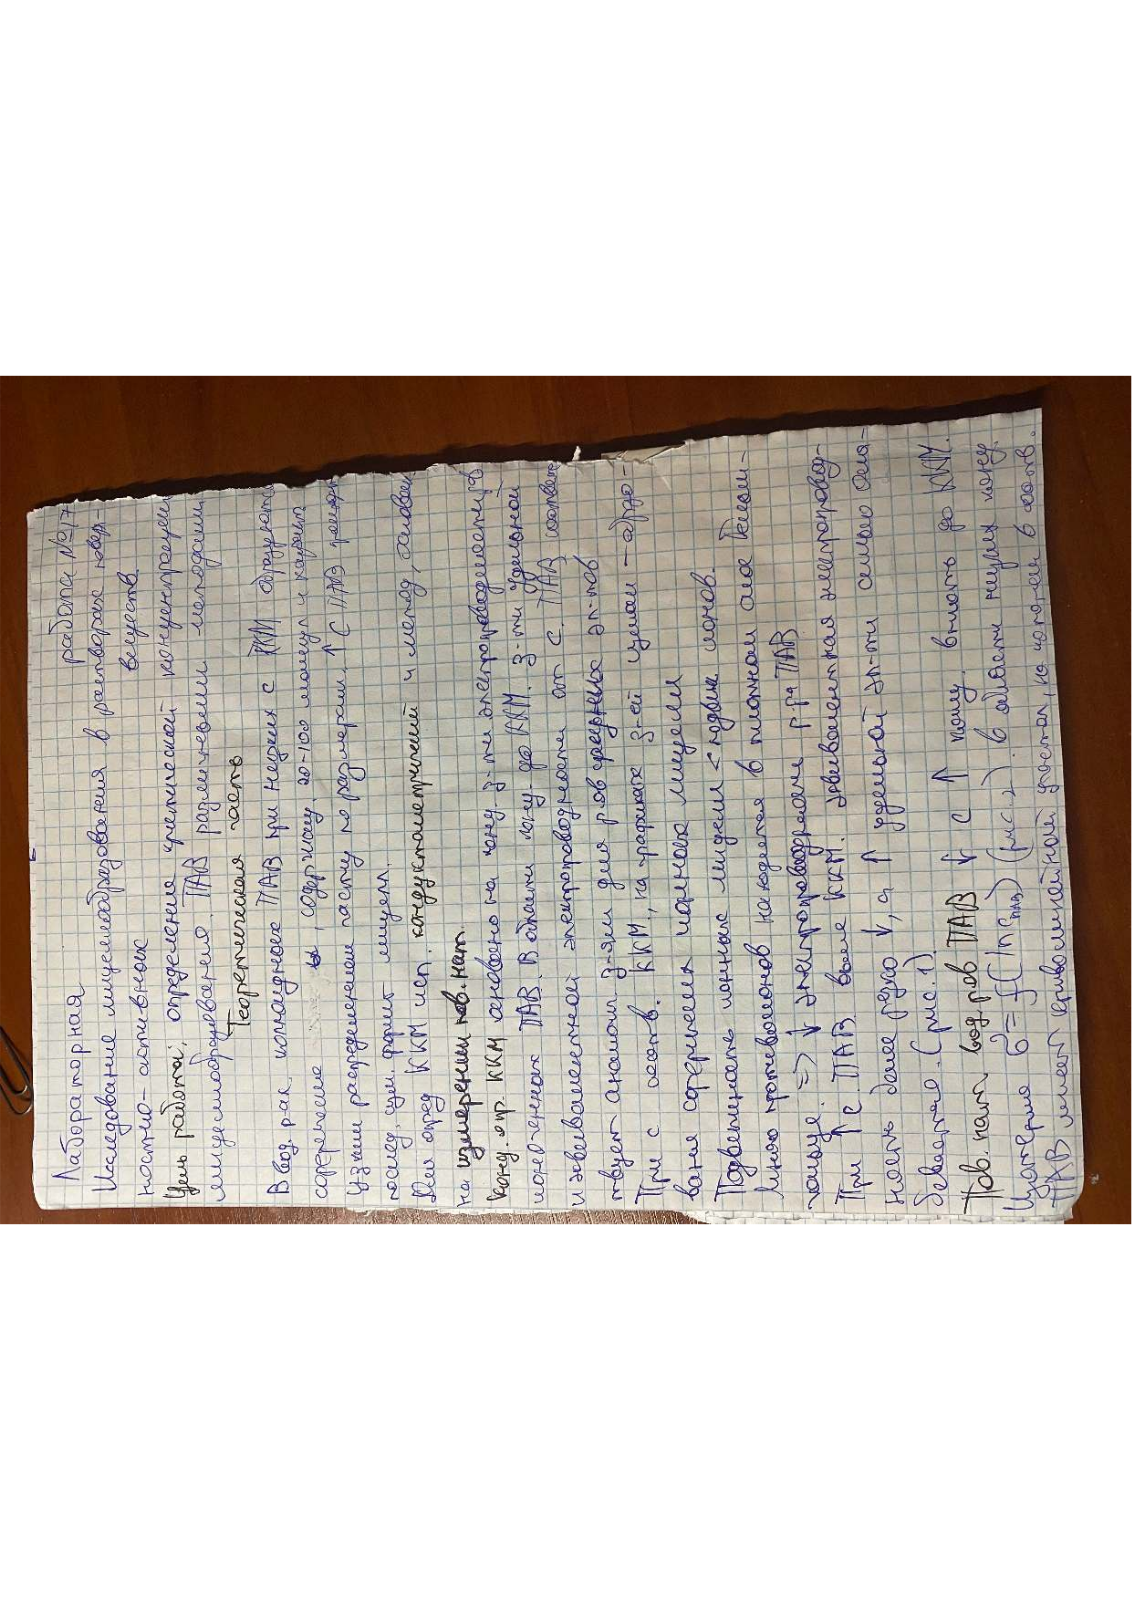 Лабораторная работа №17
Исследование мицеллообразования в растворах поверх-
ностно-активных веществ.
Цель работы: определение критической концентрации
мицеллообразования ПАВ различными методами
Теоретическая часть
В вод. р-рах коллоидных ПАВ при низких с ККМ образуются
сферические, содержащ. 20-100 молекул и характ.
узким распределением частиц по размерам. ↑ с ПАВ
послед. изм. форм мицелл.
Для опред ККМ исп. кондуктометрический и метод, основан
на измерении пов. нат.
Конд. опр. ККМ основано на конц. з-ти электропроводности р-ов
ионогенных ПАВ. В области конц. до ККМ. з-ти удельной
и эквивалентной электропроводности от с. ПАВ соответст
твуют аналогич. з-ям для р-ов средних эл-тов
При с соотв. ККМ, на графике з-ей излом - образо-
вание сферических ионных мицелл
Подвижность ионных мицелл < подвиж ионов.
противоионов находятся в плотном слое
частице. => ↓ электропроводности р-ра ПАВ
При ↑ с. ПАВ выше ККМ. эквивалентная электропровод-
ность более резко ↓, а ↑ удельной эл-ти сильно осла-
бевается. (рис. 1)
Пов. нат вод. р-ов ПАВ ↓ с ↑ конц. вплоть до ККМ.
Изотерма σ = f(ln c пав) (рис. 2) в области низких конц.
ПАВ имеет криволинейный участок, на котором в соотв.